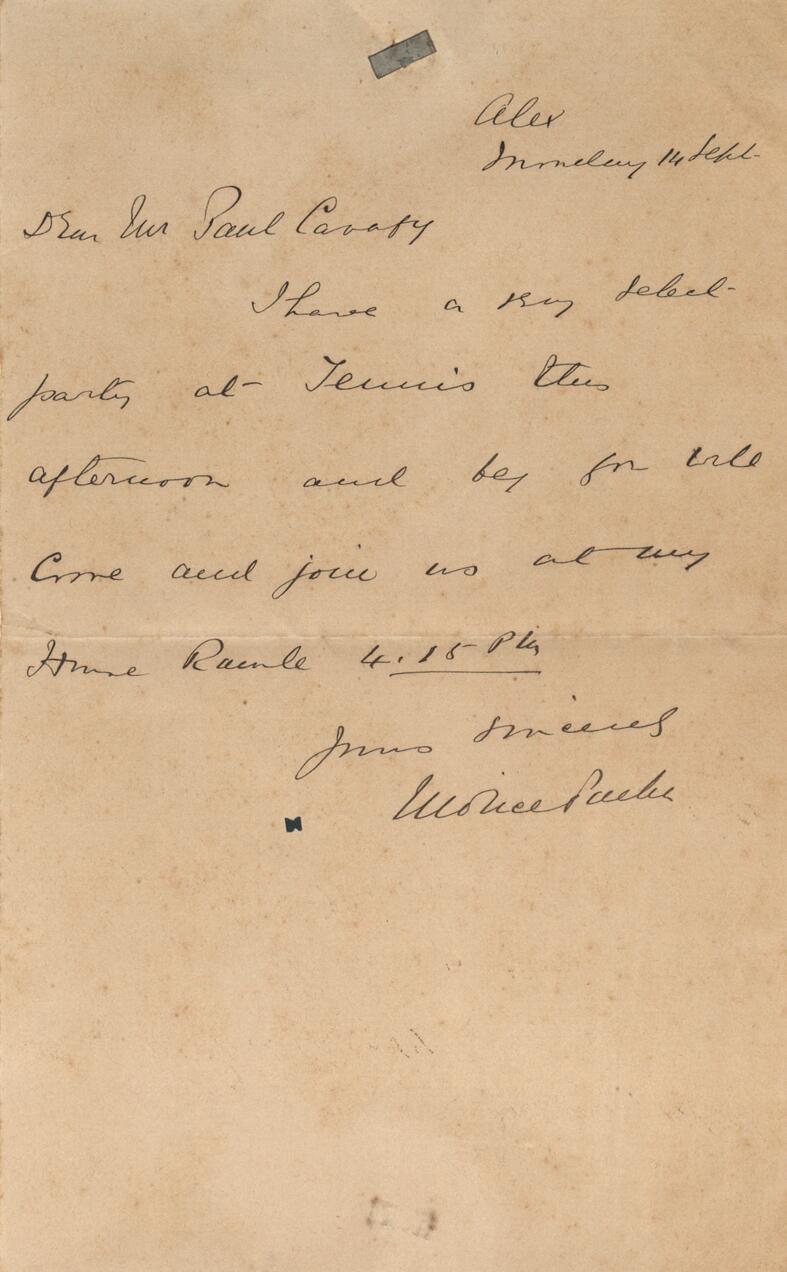 Alex
Monday 14 Sept.
Dear Mr Paul Cavafy
I have a very select
party at Tennis this
afternoon and beg you will
Come and join us at my
House Ramle 4.15 PM
Yours sincerely
Morice Pacha